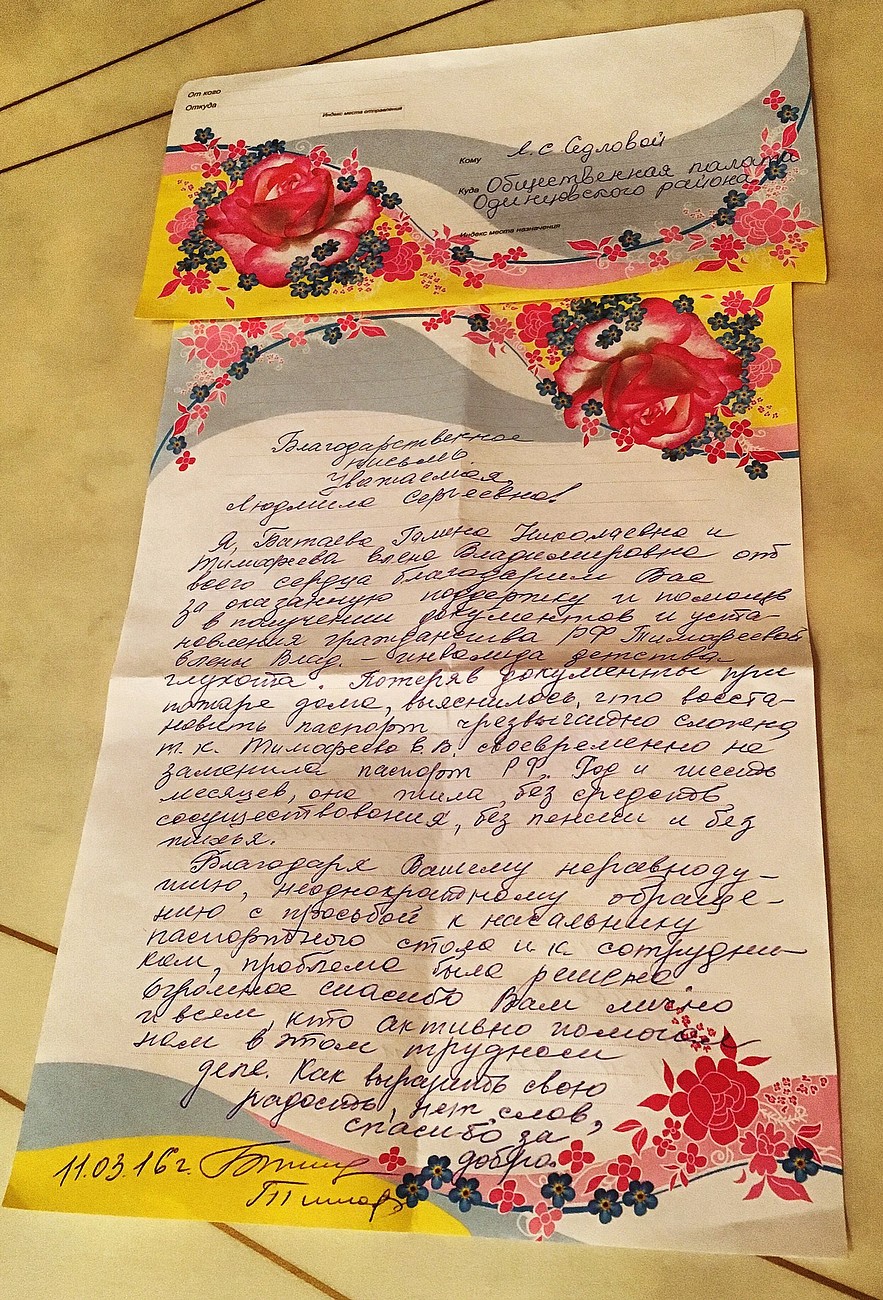 От кого
Откуда
Индекс места отправления
Кому Л.С Седловой
Куда Общественная палата
Одинцовского района
Индекс места назначения
Благодарственное
письмо
Уважаемая,
Людмила Сергеевна!
Я, Батаева Галина Николаевна и
Тимофеева Елена Владимировна от
всего сердца благодарим Вас
за оказанную поддержку и помощь
в получении документов и уста-
новления гражданства РФ Тимофеевой
Елены Влад. – инвалида детства
глухота. Потеряв документы при
пожаре дома, выяснилось, что восста-
новить паспорт чрезвычайно сложно,
т. к. Тимофеева Е.В. своевременно не
заменила паспорт РФ. Год и шесть
месяцев, она жила без средств
сосуществования, без пенсии и без
жилья.
Благодаря Вашему неравноду-
шию, неоднократному обраще-
нию с просьбой к начальнику
паспортного стола и к сотрудни-
кам, проблема была решена
Огромное спасибо Вам лично
и всем, кто активно помогал
нам в этом трудном
деле. Как выразить свою
радость, нет слов,
спасибо за
добро.
11.03.16 г.